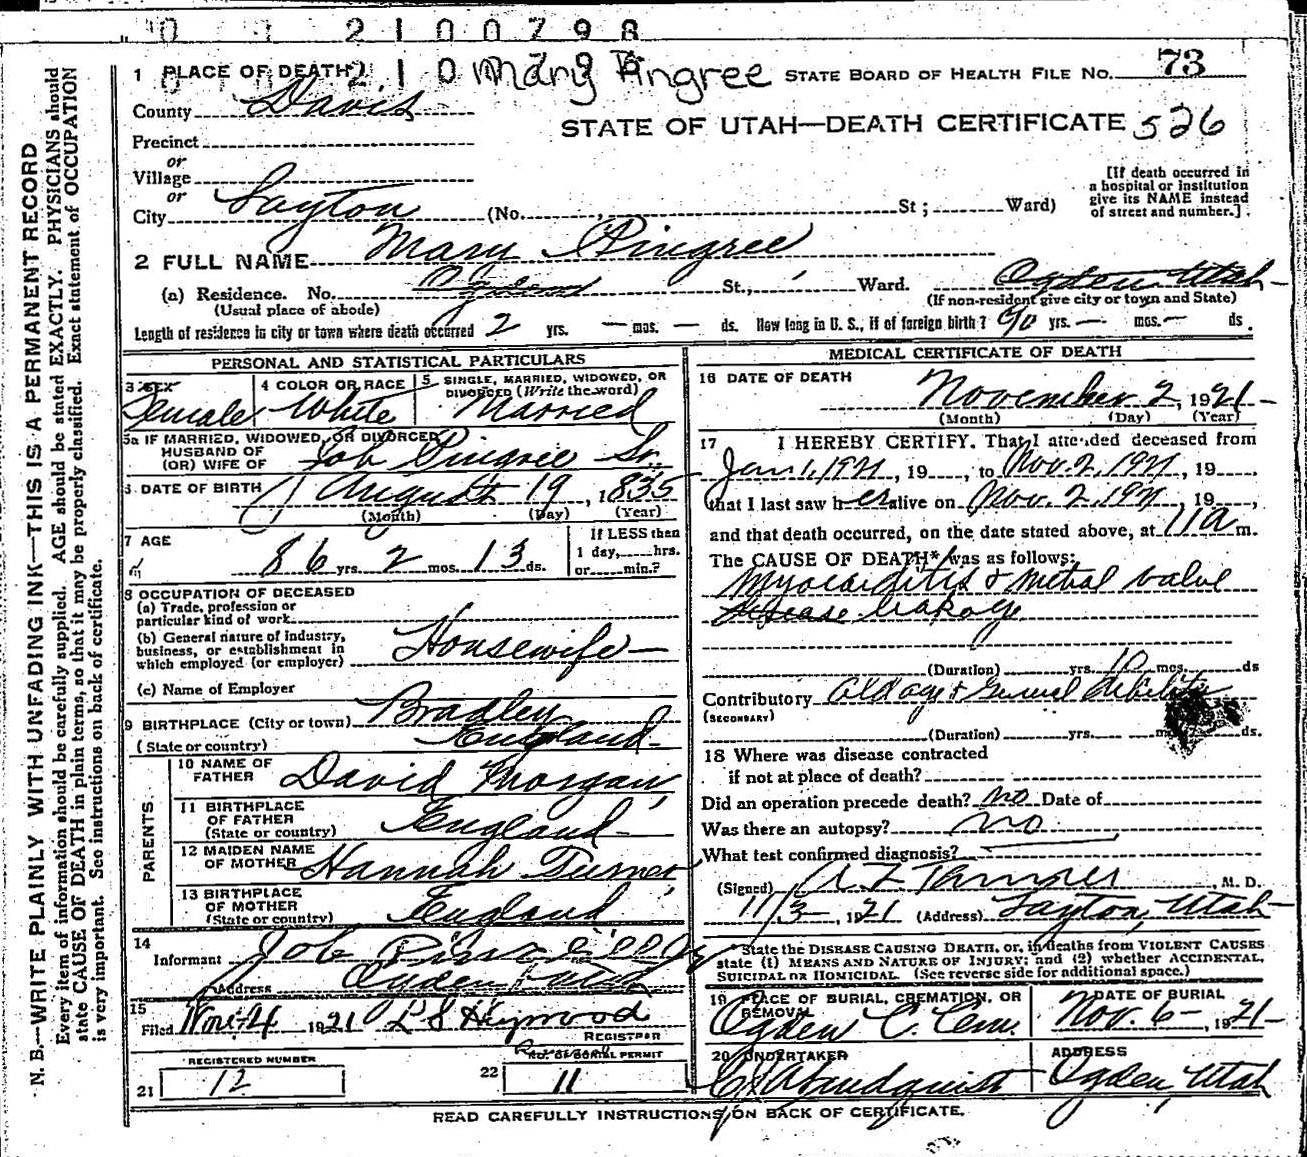 2100798
1 PLACE OF DEATH 210 Mary Pingree STATE BOARD OF HEALTH FILE NO. 73
County Davis
STATE OF UTAH—DEATH CERTIFICATE 526
Precinct
or
Village
or
City Layton (No. St; Ward)
[If death occurred in
a hospital or institution
give its NAME instead
of street and number.]
2 FULL NAME Mary Pingree
(a) Residence. No. Ogden St., Ward. Ogden, Utah
(Usual place of abode) (If non-resident give city or town and State)
Length of residence in city or town where death occurred 2 yrs. — mos. — ds. How long in U. S., if of foreign birth? yrs. — mos. — ds.
PERSONAL AND STATISTICAL PARTICULARS
3 SEX Female
4 COLOR OR RACE White
5 SINGLE, MARRIED, WIDOWED, OR
DIVORCED (Write the word)
Married
5a IF MARRIED, WIDOWED, OR DIVORCED
HUSBAND OF
(OR) WIFE OF Job Pingree Sr.
6 DATE OF BIRTH August 19, 1835
(Month) (Day) (Year)
7 AGE
86 yrs. 2 mos. 13 ds.
If LESS than
1 day, hrs.
or min.?
8 OCCUPATION OF DECEASED
(a) Trade, profession or
particular kind of work
(b) General nature of industry,
business, or establishment in
which employed (or employer) Housewife
(c) Name of Employer
9 BIRTHPLACE (City or town) Bradley
(State or country) England
PARENTS
10 NAME OF
FATHER David Morgan
11 BIRTHPLACE
OF FATHER
(State or country) England
12 MAIDEN NAME
OF MOTHER Hannah Turner
13 BIRTHPLACE
OF MOTHER
(State or country) England
14
Informant Job Pingree
Address Ogden Utah
15
Filed Nov. 4 1921 L S Heywood
REGISTRAR
REGISTERED NUMBER
21 12
NO. OF BURIAL PERMIT
22 11
MEDICAL CERTIFICATE OF DEATH
16 DATE OF DEATH
November 2, 1921
(Month) (Day) (Year)
17 I HEREBY CERTIFY. That I attended deceased from
Jan 1, 1921, 19 , to Nov. 2, 1921, 19 ,
that I last saw her alive on Nov. 2, 1921, 19 ,
and that death occurred, on the date stated above, at 11 a m.
The CAUSE OF DEATH* was as follows:
Myocarditis & mitral valve
disease leakage
(Duration) yrs. 10 mos. ds
Contributory Old age & General debility
(SECONDARY)
(Duration) yrs. ds.
18 Where was disease contracted
if not at place of death?
Did an operation precede death? no Date of
Was there an autopsy? no
What test confirmed diagnosis?
(Signed) M. D.
11/3, 1921 (Address) Layton, Utah
*State the DISEASE CAUSING DEATH, or, in deaths from VIOLENT CAUSES
state (1) MEANS AND NATURE OF INJURY; and (2) whether ACCIDENTAL,
SUICIDAL OR HOMICIDAL. (See reverse side for additional space.)
19 PLACE OF BURIAL, CREMATION, OR
REMOVAL
Ogden C. Cem.
DATE OF BURIAL
Nov. 6—, 1921
20 UNDERTAKER
Lindquist
ADDRESS
Ogden, Utah
READ CAREFULLY INSTRUCTIONS ON BACK OF CERTIFICATE.
N. B.—WRITE PLAINLY WITH UNFADING INK—THIS IS A PERMANENT RECORD
Every item of information should be carefully supplied. AGE should be stated EXACTLY. PHYSICIANS should
state CAUSE OF DEATH in plain terms, so that it may be properly classified. Exact statement of OCCUPATION
is very important. See instructions on back of certificate.